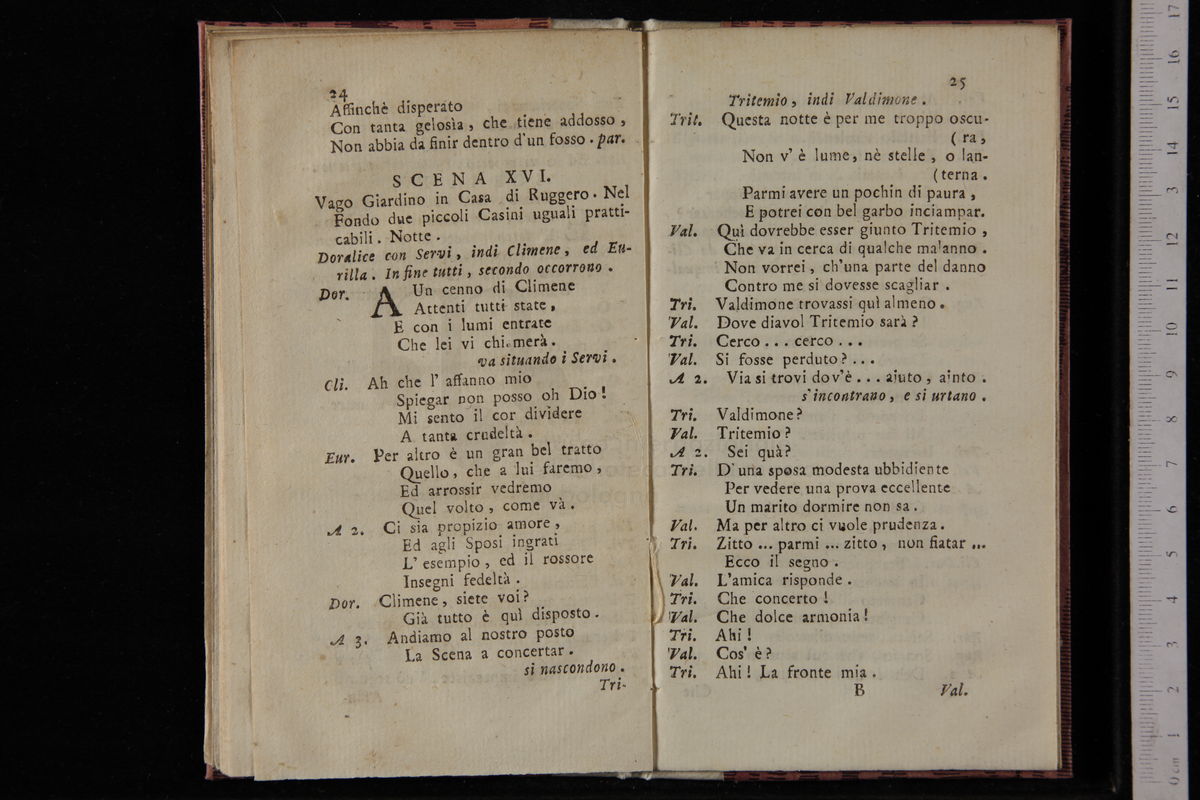 24
Affinchè disperato
Con tanta gelosìa , che tiene addosso ,
Non abbia da finir dentro d'un fosso . par.
SCENA XVI.
Vago Giardino in Casa di Ruggero . Nel
Fondo due piccoli Casini uguali pratti-
cabili . Notte .
Doralice con Servi , indi Climene , ed Eu-
rilla . In fine tutti , secondo occorrono .
Dor. AUn cenno di Climene
Attenti tutti state ,
E con i lumi entrate
Che lei vi chiamerà .
va situando i Servi .
Cli. Ah che l' affanno mio
Spiegar non posso oh Dio !
Mi sento il cor dividere
A tanta crudeltà .
Eur. Per altro è un gran bel tratto
Quello , che a lui faremo ,
Ed arrossir vedremo
Quel volto , come và .
A 2. Ci sia propizio amore ,
Ed agli Sposi ingrati
L' esempio , ed il rossore
Insegni fedeltà .
Dor. Climene , siete voi ?
Già tutto è quì disposto .
A 3. Andiamo al nostro posto
La Scena a concertar .
si nascondono .
Tri-
25
Tritemio , indi Valdimone .
Trit. Questa notte è per me troppo oscu-
( ra ,
Non v' è lume , nè stelle , o lan-
( terna .
Parmi avere un pochin di paura ,
E potrei con bel garbo inciampar.
Val. Quì dovrebbe esser giunto Tritemio ,
Che va in cerca di qualche malanno .
Non vorrei , ch'una parte del danno
Contro me si dovesse scagliar .
Tri. Valdimone trovassi quì almeno .
Val. Dove diavol Tritemio sarà ?
Tri. Cerco . . . cerco . . .
Val. Si fosse perduto ? . . .
A 2. Via si trovi dov'è . . . aiuto , ainto .
s'incontrano , e si urtano .
Tri. Valdimone ?
Val. Tritemio ?
A 2. Sei quà ?
Tri. D' una sposa modesta ubbidiente
Per vedere una prova eccellente
Un marito dormire non sa .
Val. Ma per altro ci vuole prudenza .
Tri. Zitto ... parmi ... zitto , non fiatar ...
Ecco il segno .
Val. L'amica risponde .
Tri. Che concerto !
Val. Che dolce armonia !
Tri. Ahi !
Val. Cos' è ?
Tri. Ahi ! La fronte mia .
B Val.
0 cm 1 2 3 4 5 6 7 8 9 10 11 12 13 14 15 16 17